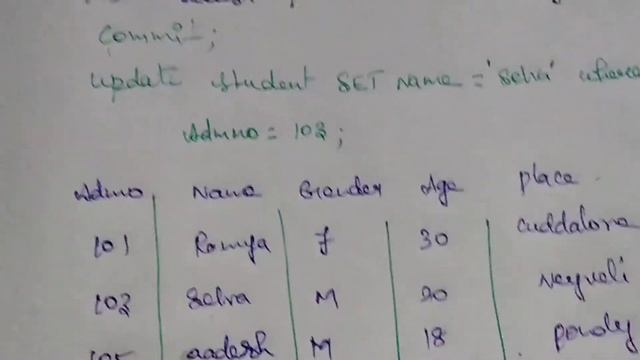 commit;
update student SET name = 'Selva' where
Admno = 103;
Admno Name Gender Age place
101 Ramya f 30 cuddalore
103 Selva M 20 Neyveli
105 aadesh M 18 pondy